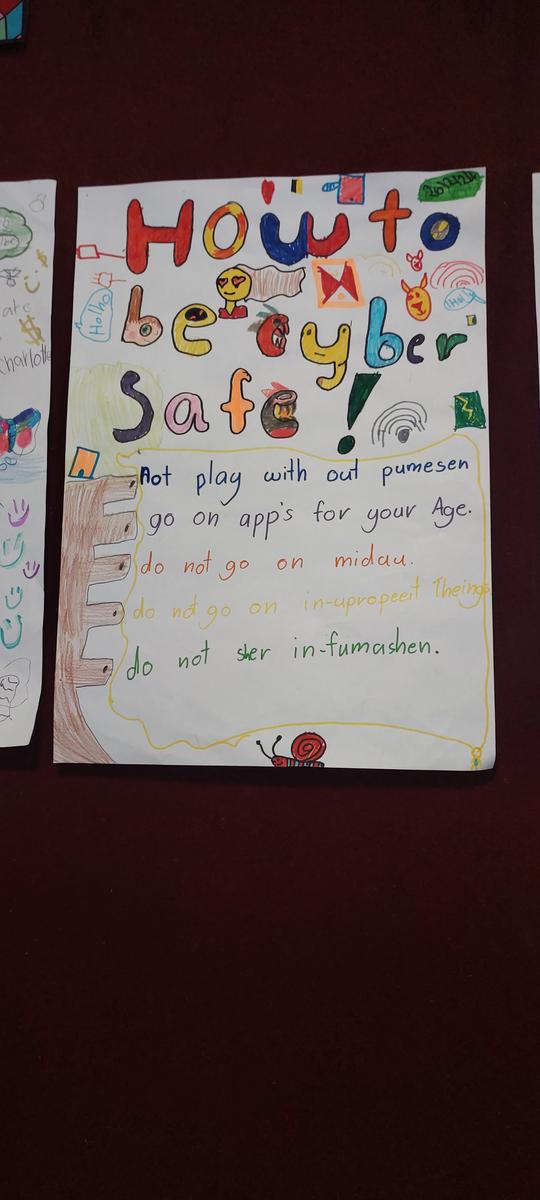 How to
be Cyber
Safe!
Hoho
Ho!
Not play with out pumesen
go on app's for your Age.
do not go on midau.
do not go on in-upropeeit Theings
do not sher in-fumashen.
ate
charlotte